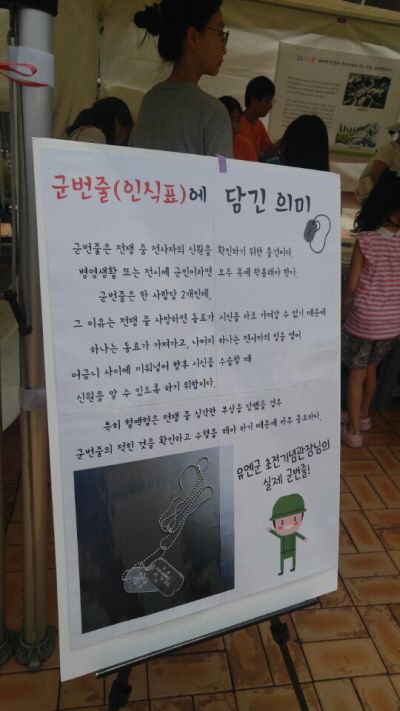 군번줄(인식표)에 담긴 의미
군번줄은 전쟁 중 전사자의 신원을 확인하기 위한 물건이다.
병영생활 또는 전시에 군인이라면 모두 목에 착용해야 한다.
군번줄은 한 사람당 2개인데,
그 이유는 전쟁 중 사망하면 동료가 시신을 바로 가져갈 수 없기 때문에
하나는 동료가 가져가고, 나머지 하나는 전사자의 입을 벌려
어금니 사이에 끼워넣어 향후 시신을 수습할 때
신원을 알 수 있도록 하기 위함이다.
특히 혈액형은 전쟁 중 심각한 부상을 당했을 경우
군번줄의 적힌 것을 확인하고 수혈을 해야 하기 때문에 아주 중요하다.
유엔군 초전기념관장님의
실제 군번줄!